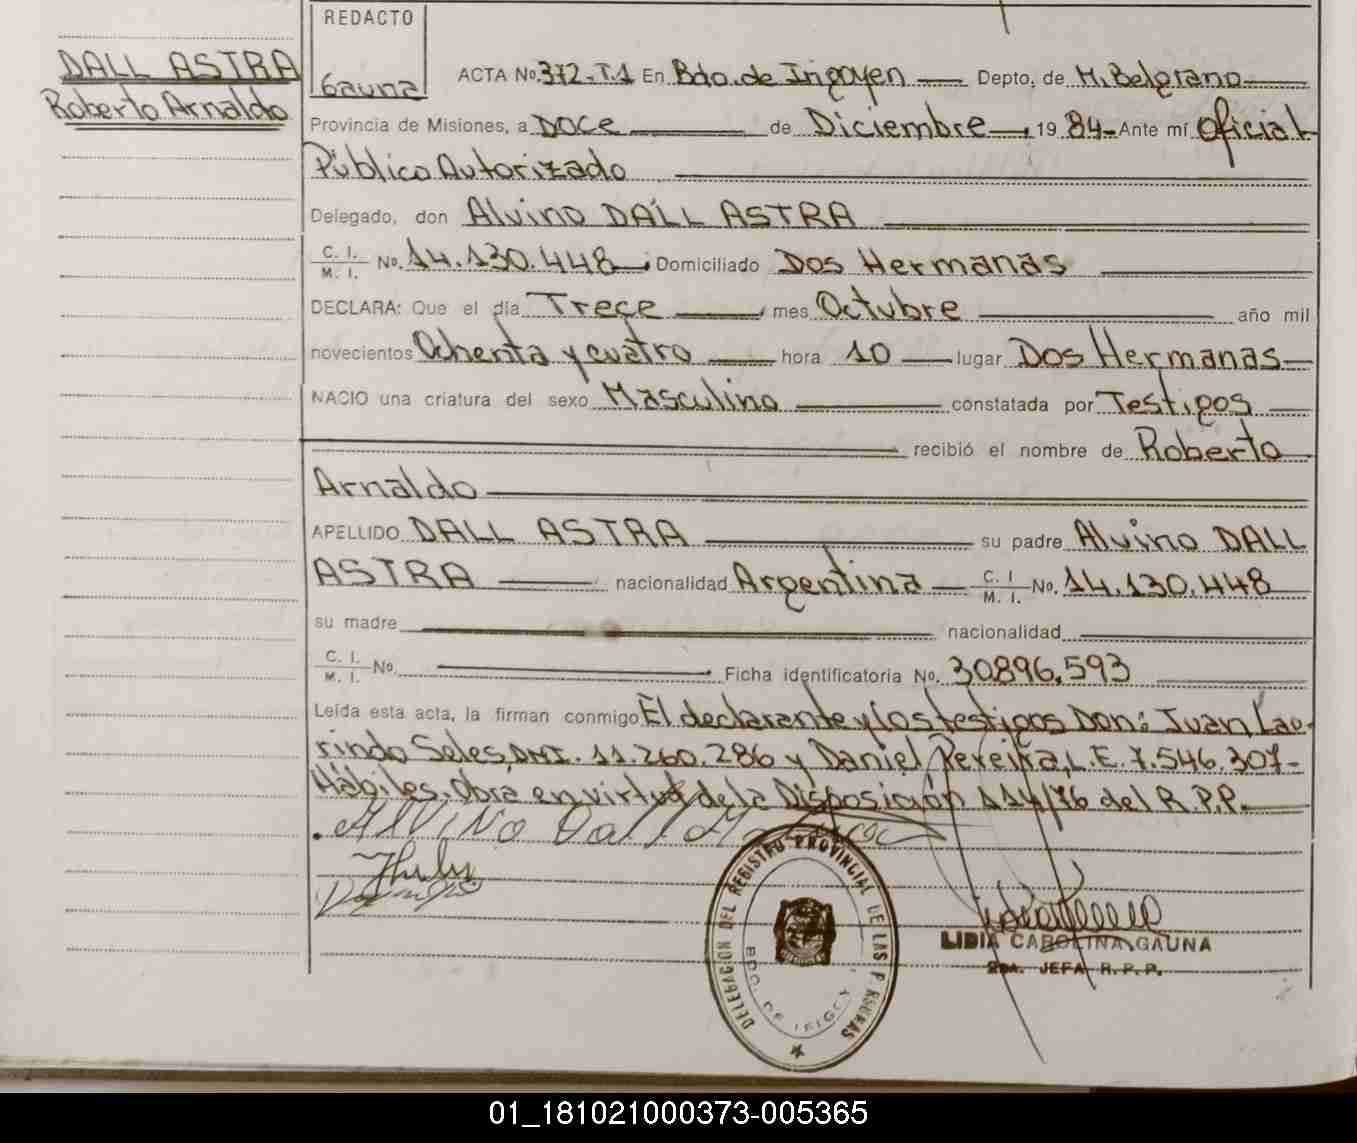 DALL ASTRA
Roberto Arnaldo
REDACTO
Gauna
ACTA No. 372-T.1 En Bdo. de Irigoyen Depto. de M. Belgrano
Provincia de Misiones, a Doce de Diciembre, 19 84- Ante mí Oficial
Público Autorizado
Delegado, don Alvino DALL ASTRA
C. I. / M. I. No. 14.130.448 Domiciliado Dos Hermanas
DECLARA: Que el día Trece mes Octubre año mil
novecientos Ochenta y cuatro hora 10 lugar Dos Hermanas
NACIO una criatura del sexo Masculino constatada por Testigos
recibió el nombre de Roberto
Arnaldo
APELLIDO DALL ASTRA su padre Alvino DALL
ASTRA nacionalidad Argentina C. I. / M. I. No. 14.130.448
su madre nacionalidad
C. I. / M. I. No. Ficha identificatoria No. 30896.593
Leída esta acta, la firman conmigo El declarante y los testigos Don: Juan Lau-
rindo Seles, DNI. 11.260.286 y Daniel Pereira, L.E. 7.546.307-
Hábiles. Obra en virtud de la Disposición 114/76 del R.P.P.
Alvino Dall
DELEGACION DEL REGISTRO PROVINCIAL DE LAS PERSONAS
BDO. DE IRIGOY
LIDIA CAROLINA GAUNA
2da. JEFA R.P.P.
01_181021000373-005365